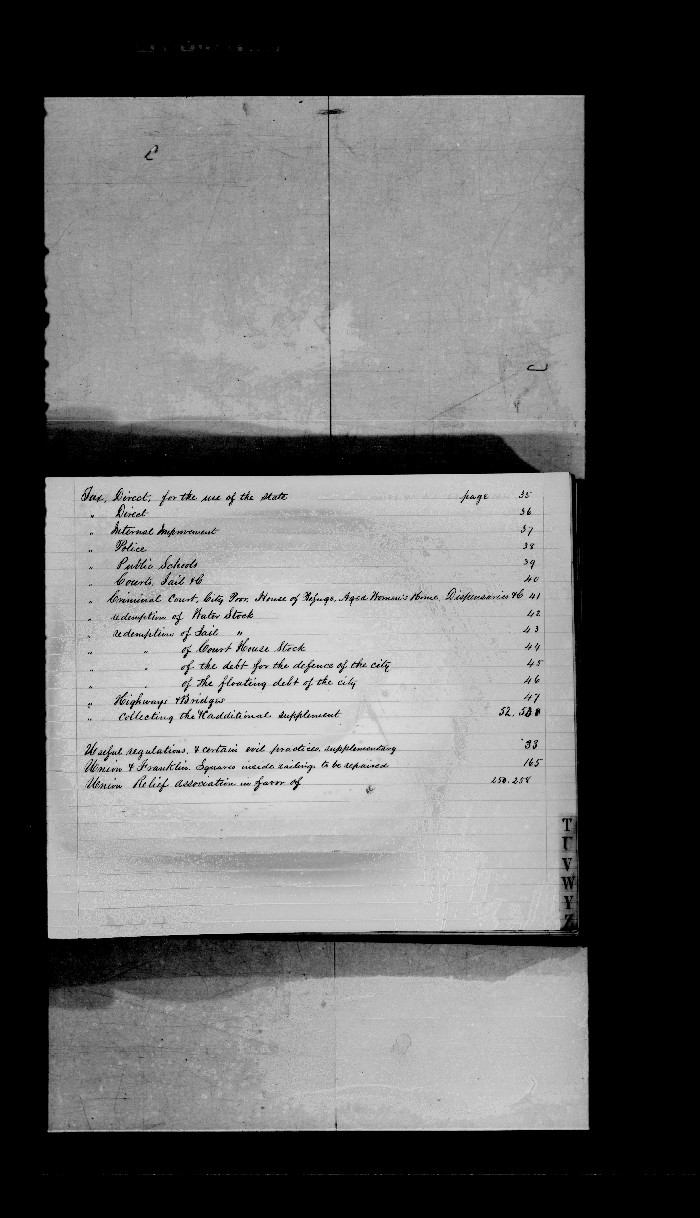 Tax, Direct, for the use of the state page 35
" Direct 36
" Internal Improvement 37
" Police 38
" Public Schools 39
" Courts, Jail &C 40
" Criminal Court, City Poor, House of Refuge, Aged Women's Home, Dispensaries &C 41
" redemption of Water Stock 42
" redemption of Jail " 43
" " of Court House Stock 44
" " of the debt for the defence of the city 45
" " of the floating debt of the city 46
" Highways & Bridges 47
" collecting the & additional supplement 52.
Useful regulations, & certain evil practices, supplementary 33
Union & Franklin Squares inside railing, to be repaired 165
Union Relief Association in favor of 250.254
T
U
V
W
Y
Z